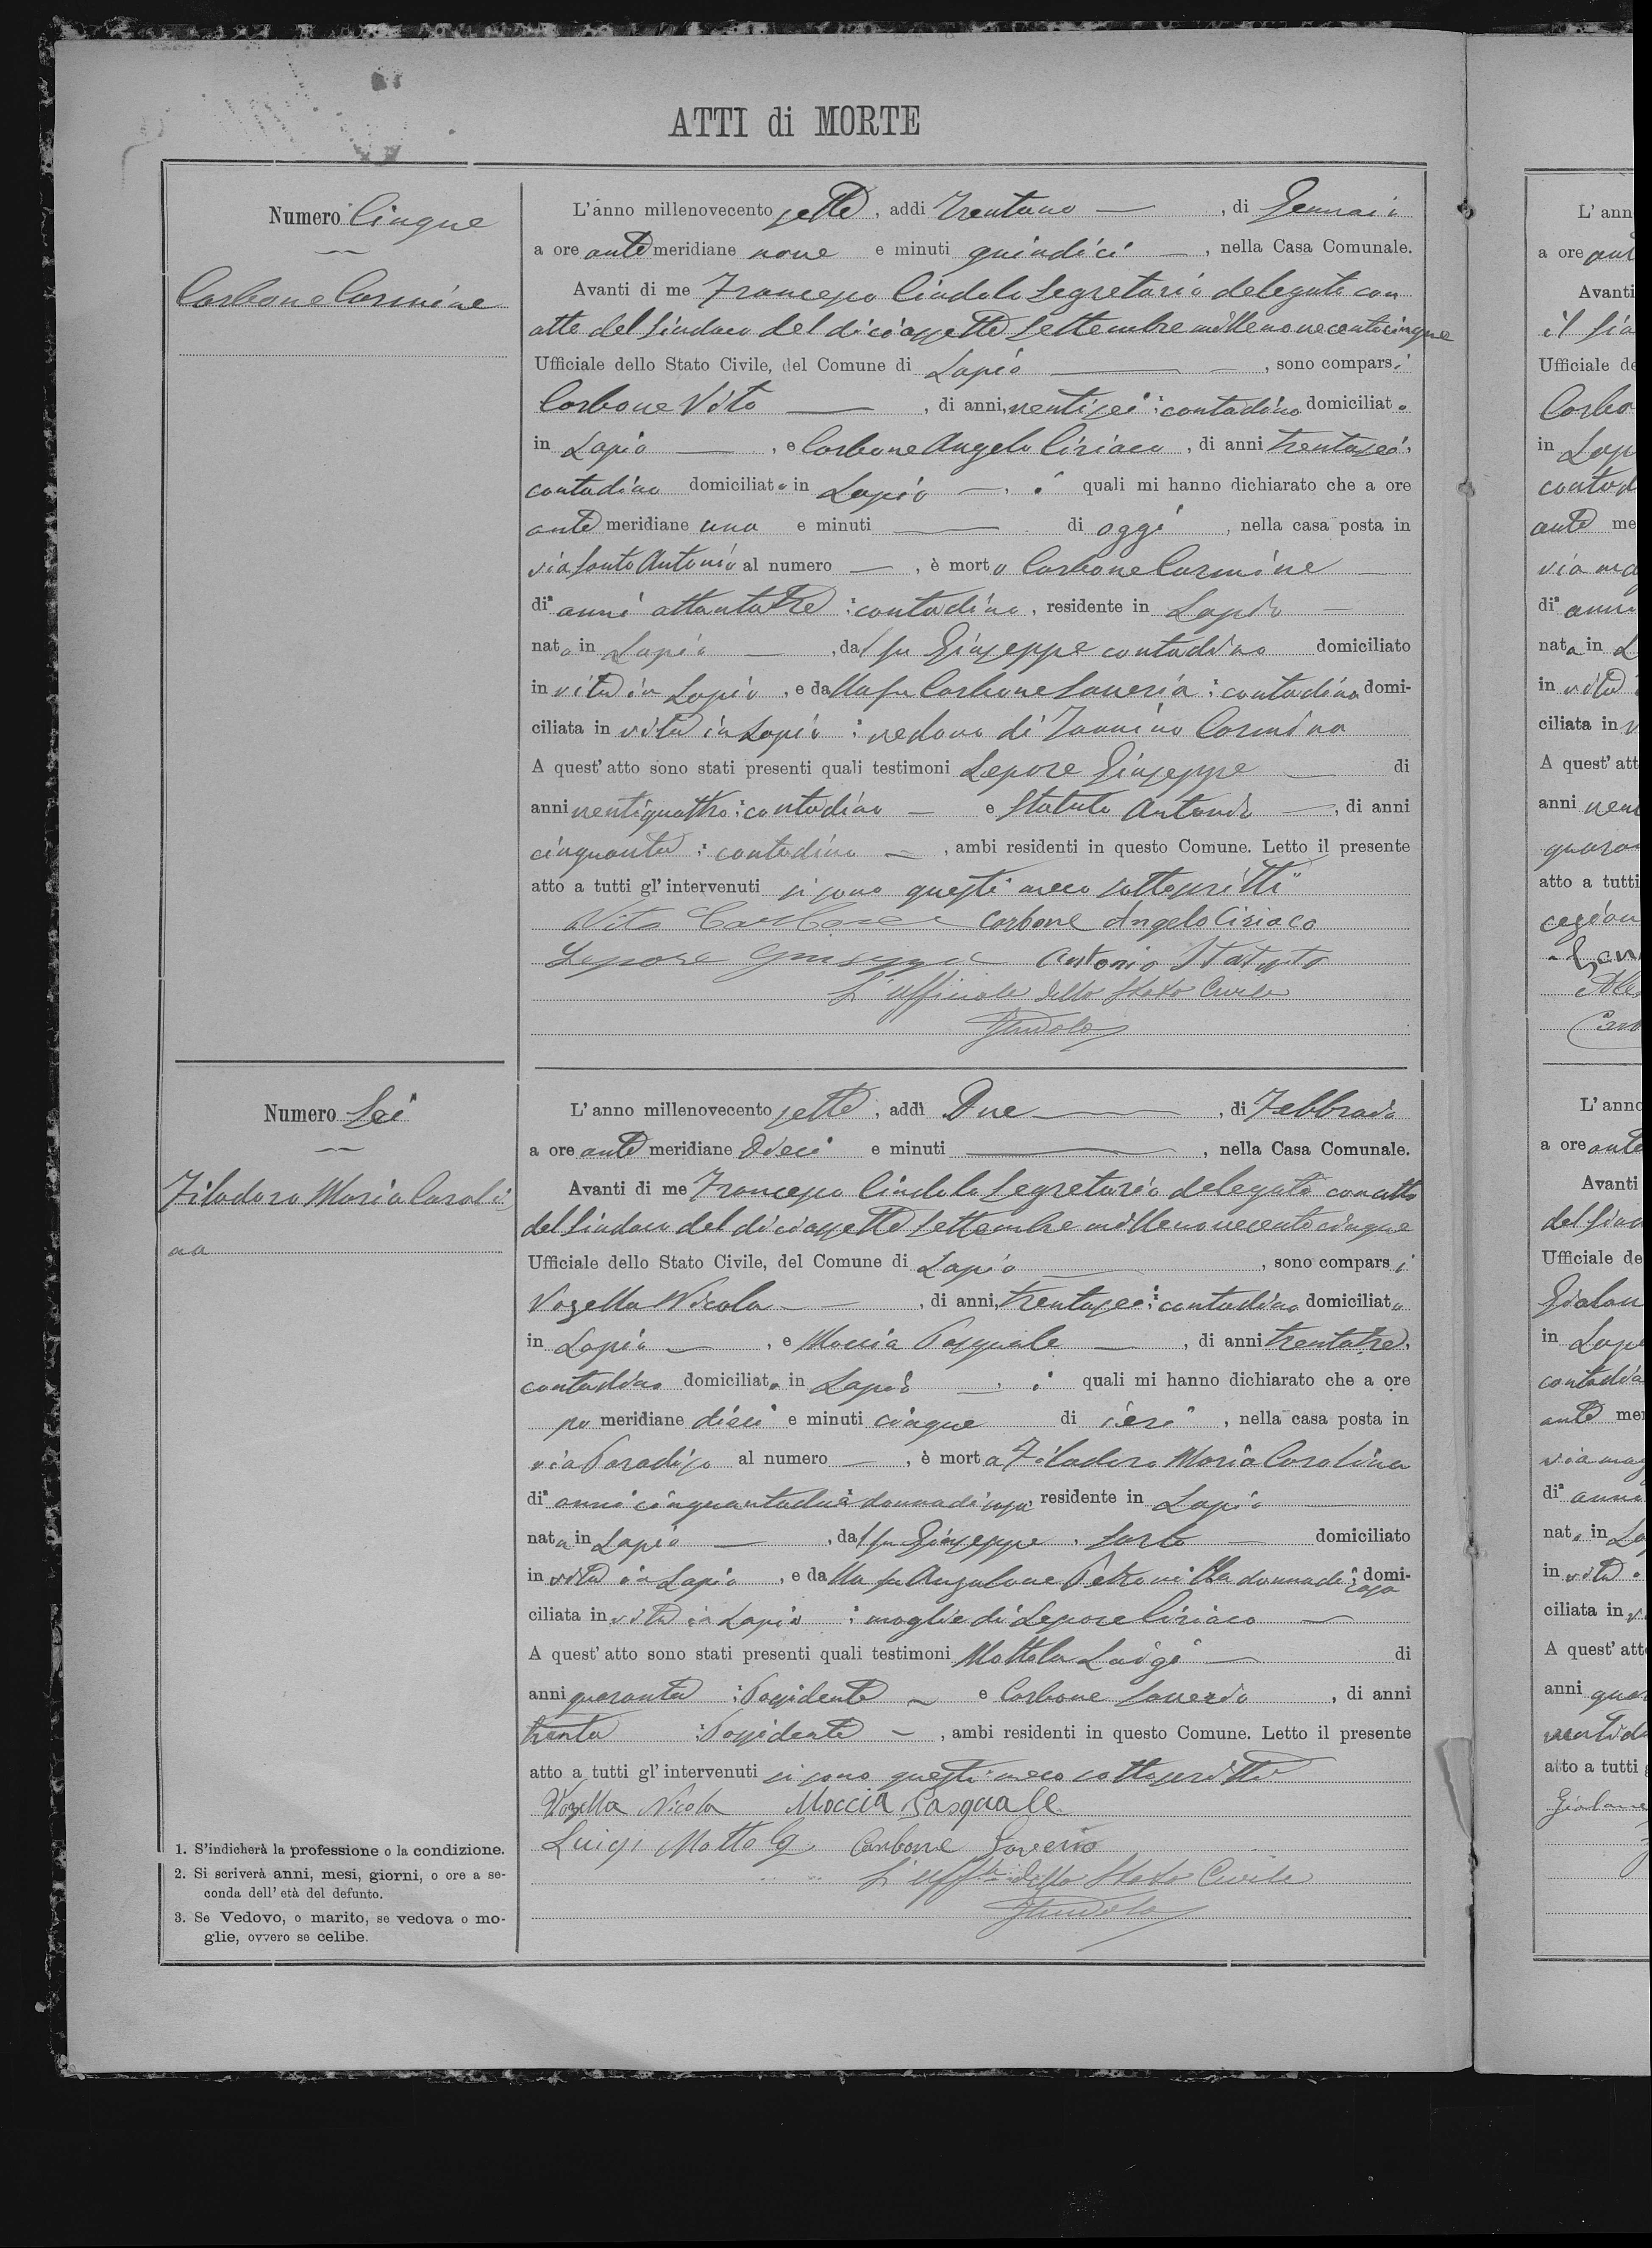 ATTI di MORTE
Numero Cinque
Carbone Carmine
L'anno millenovecento sette, addi trentuno —, di Gennaio
a ore antemeridiane nove e minuti quindici —, nella Casa Comunale.
Avanti di me Francesco Cindolo Segretario delegato con
atto del Sindaco del diciassette Settembre millenovecentocinque
Ufficiale dello Stato Civile, del Comune di Lapio —, sono comparsi
Carbone Vito —, di anni, ventisei: contadino domiciliato
in Lapio —, e Carbone Angelo Ciriaco, di anni trentasei,
contadino domiciliato in Lapio —, i quali mi hanno dichiarato che a ore
antemeridiane una e minuti — di oggi, nella casa posta in
via Santo Antonio al numero —, è morto Carbone Carmine —
di anni ottantatre: contadino, residente in Lapio —
nato in Lapio —, dal fu Giuseppe contadino domiciliato
in vita in Lapio, e dalla fu Carbone Saveria: contadina domi-
ciliata in vita in Lapio: vedovo di Iannino Carmina
A quest'atto sono stati presenti quali testimoni Lepore Giuseppe — di
anni ventiquattro: contadino — e Statuto Antonio —, di anni
cinquanta: contadino —, ambi residenti in questo Comune. Letto il presente
atto a tutti gl'intervenuti si sono questi meco sottoscritti
Vito Carbone Carbone Angelo Ciriaco
Lepore Giuseppe Antonio Statuto
L'Ufficiale dello Stato Civile
Numero Sei
Filadoro Maria Caroli-
na
L'anno millenovecento sette, addì Due —, di Febbraio
a ore antemeridiane Dieci e minuti —, nella Casa Comunale.
Avanti di me Francesco Cindolo Segretario delegato con atto
del Sindaco del diciassette Settembre millenovecentocinque
Ufficiale dello Stato Civile, del Comune di Lapio —, sono comparsi
Vozella Nicola —, di anni, trentasei: contadino domiciliato
in Lapio —, e Moccia Pasquale —, di anni trentatre,
contadino domiciliato in Lapio —, i quali mi hanno dichiarato che a ore
po meridiane dieci e minuti cinque di ieri, nella casa posta in
via Paradiso al numero —, è morta Filadoro Maria Carolina
di anni cinquantadue: donna di casa, residente in Lapio
nata in Lapio —, dal fu Giuseppe, sarto — domiciliato
in vita in Lapio, e dalla fu Anzalone Petronilla donna di casa; domi-
ciliata in vita in Lapio: moglie di Lepore Ciriaco —
A quest'atto sono stati presenti quali testimoni Mottola Luigi — di
anni quaranta: Possidente — e Carbone Saverio, di anni
trenta: Possidente —, ambi residenti in questo Comune. Letto il presente
atto a tutti gl'intervenuti si sono questi meco sottoscritti
Vozella Nicola Moccia Pasquale
Luigi Mottola Carbone Saverio
L'Uff.le dello Stato Civile
1. S'indicherà la professione o la condizione.
2. Si scriverà anni, mesi, giorni, o ore a se-
conda dell'età del defunto.
3. Se Vedovo, o marito, se vedova o mo-
glie, ovvero se celibe.
L'ann
a ore ant
Avanti
il Sin
Ufficiale de
Carbo
in Lap
contad
ante me
via
di anni
nata in L
in vita
ciliata in v
A quest'att
anni
atto a tutti
L'anno
a ore ante
Avanti
del Sin
Ufficiale de
in Lapi
contadin
ante mer
via
di anni
nato in La
in vita
ciliata in v
A quest'att
anni qua
atto a tutti